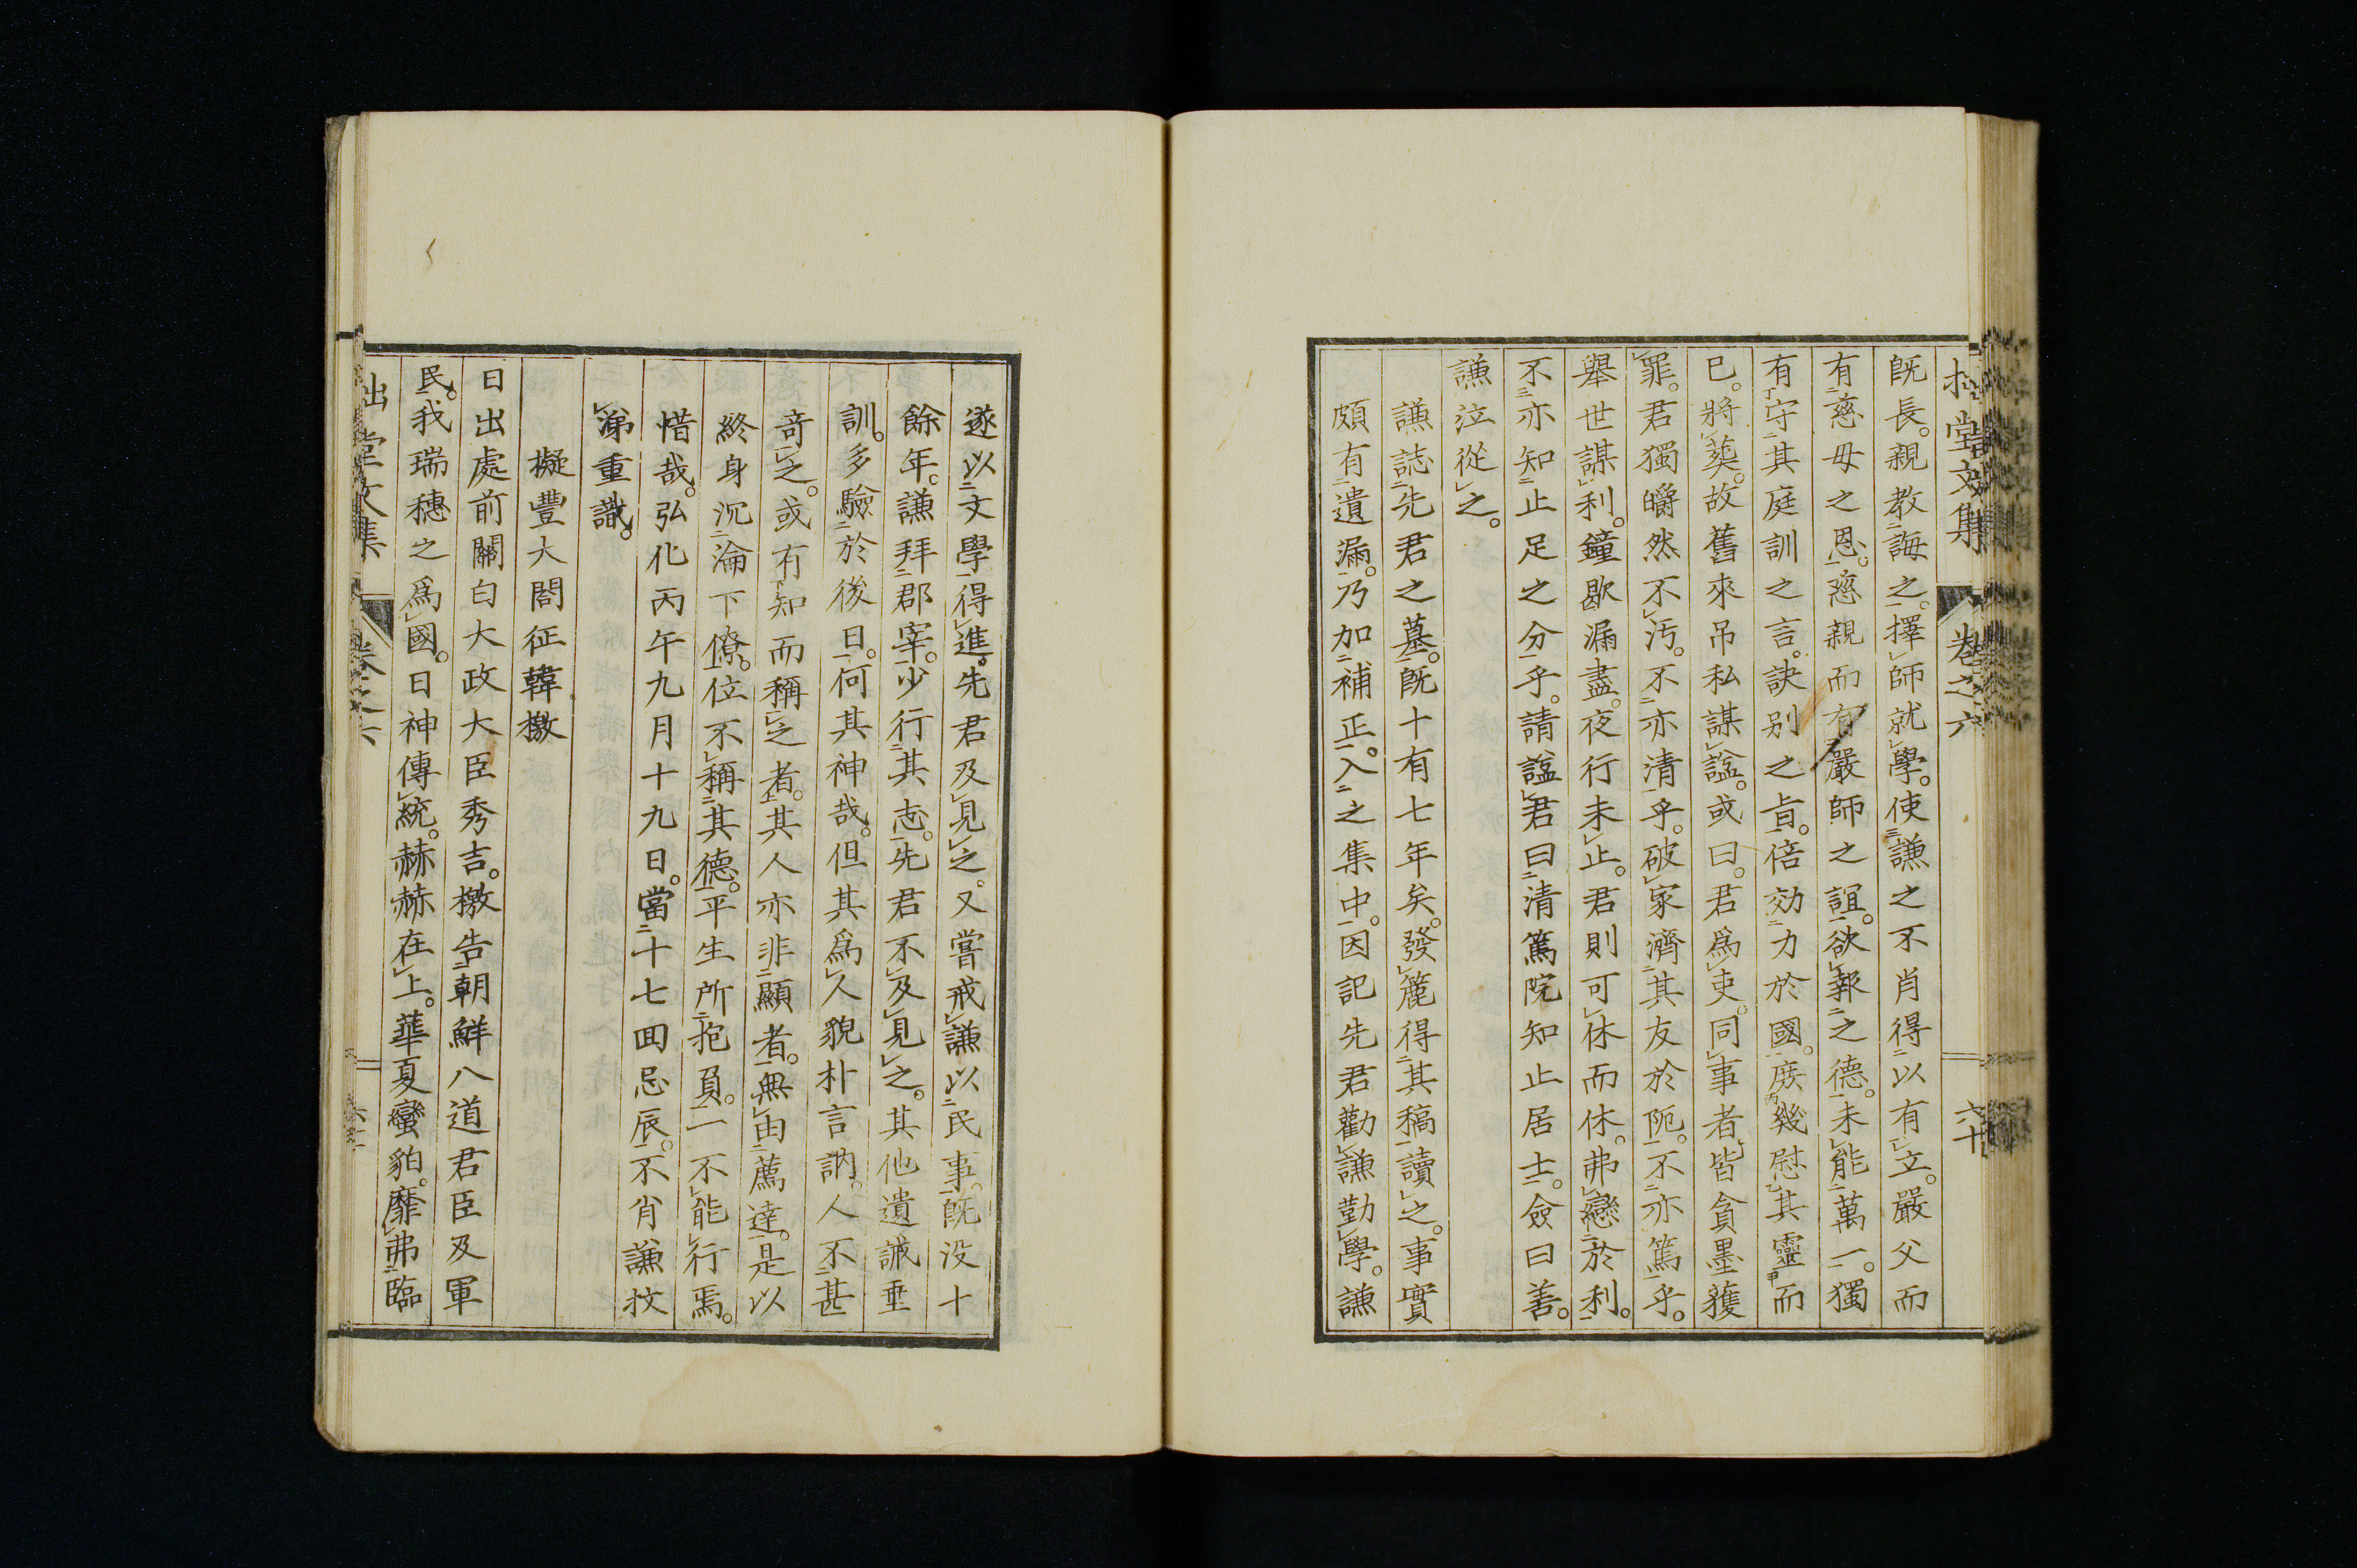 拙堂文集 卷之六 六十
既長。親教誨之。擇師就學。使謙之不肖得以有立。嚴父而
有慈母之恩。慈親而有嚴師之誼。欲報之德。未能萬一。獨
有守其庭訓之言。訣別之㫖。倍効力於國。庶幾慰其靈而
已。將葬。故舊來吊私謀諡。或曰。君爲吏。同事者皆貪墨獲
罪。君獨皭然不汚。不亦清乎。破家濟其友於阨。不亦篤乎。
舉世謀利。鐘歇漏盡。夜行未止。君則可休而休。弗戀於利。
不亦知止足之分乎。請諡君曰清篤院知止居士。僉曰善。
謙泣從之。
謙誌先君之墓。既十有七年矣。發篋得其稿讀之。事實
頗有遺漏。乃加補正。入之集中。因記先君勸謙勤學。謙
遂以文學得進。先君及見之。又嘗戒謙以民事。既没十
餘年。謙拜郡宰。少行其志。先君不及見之。其他遺誡垂
訓。多驗於後日。何其神哉。但其爲人貌朴言訥。人不甚
奇之。或有知而稱之者。其人亦非顯者。無由薦達。是以
終身沉淪下僚。位不稱其德。平生所抱負。一不能行焉。
惜哉。弘化丙午九月十九日。當十七回忌辰。不肖謙抆
涕重識。
擬豐大閤征韓檄
日出處前關白大政大臣秀吉。檄告朝鮮八道君臣及軍
民。我瑞穗之爲國。日神傳統。赫赫在上。華夏蠻貊。靡弗臨
拙堂文集 卷之六